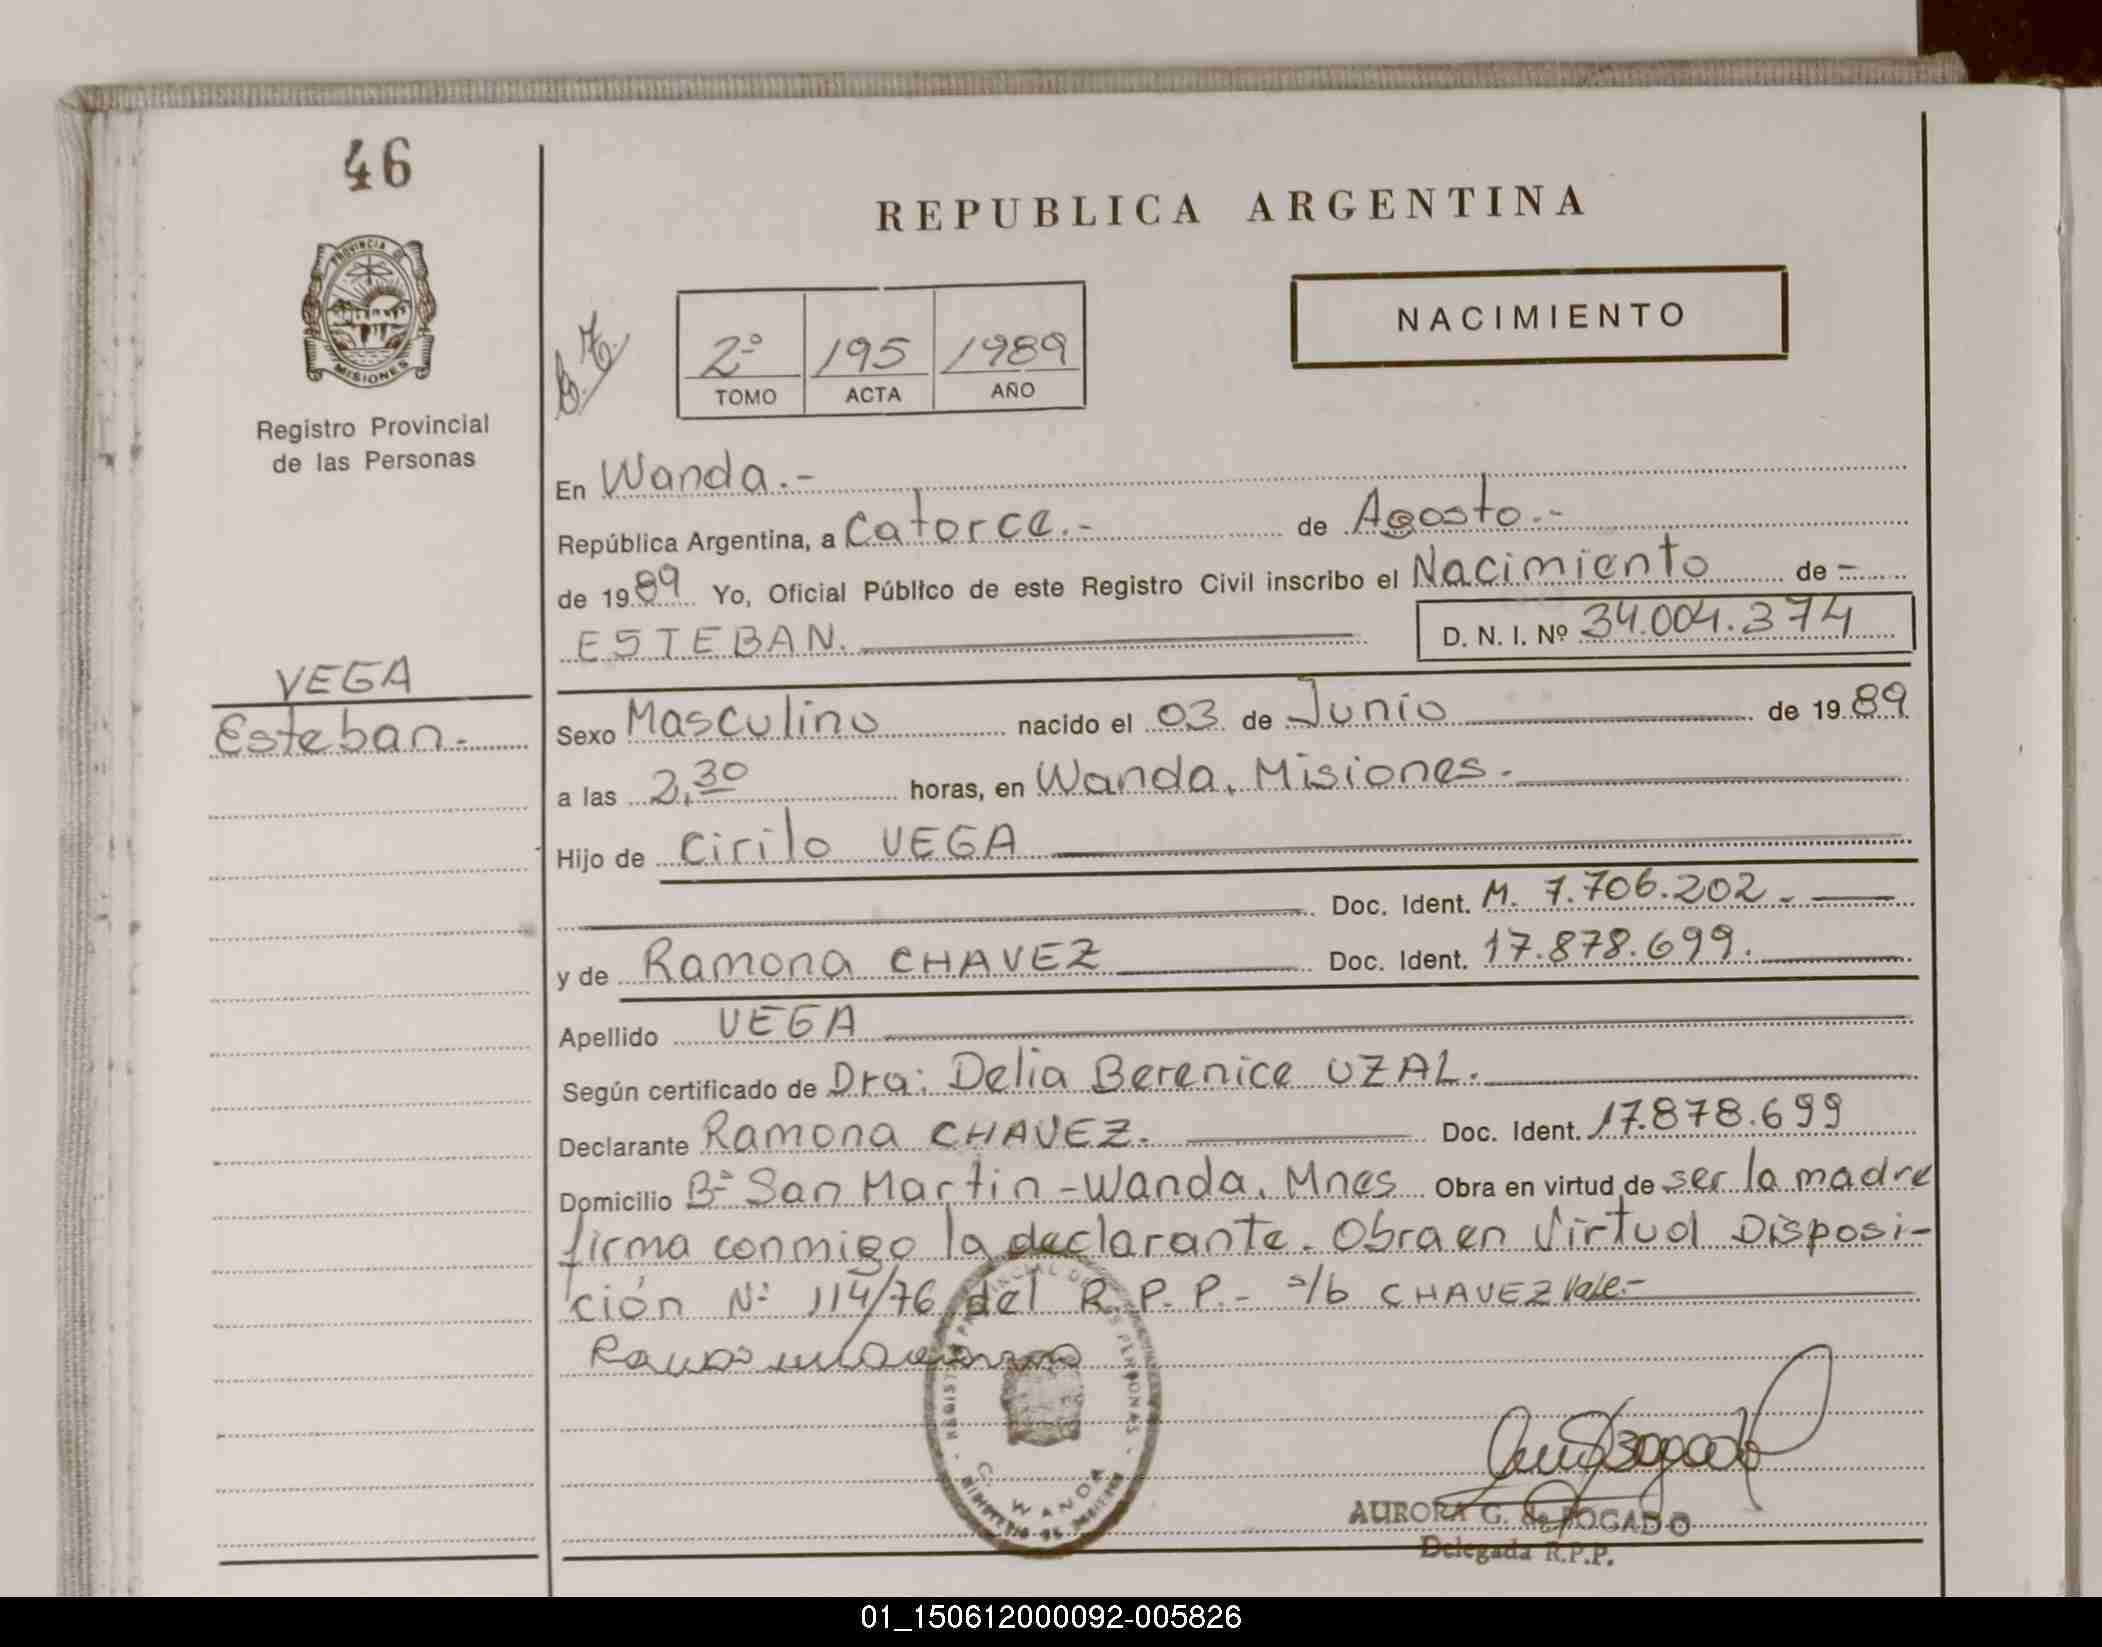 46
REPUBLICA ARGENTINA
PROVINCIA DE
MISIONES
Registro Provincial
de las Personas
NACIMIENTO
2º 195 1989
TOMO ACTA AÑO
En Wanda.-
República Argentina, a Catorce.- de Agosto.-
de 1989 Yo, Oficial Público de este Registro Civil inscribo el Nacimiento de -
ESTEBAN. D. N. I. Nº 34.004.374
VEGA
Esteban.-
Sexo Masculino nacido el 03 de Junio de 1989
a las 2,30 horas, en Wanda, Misiones.-
Hijo de Cirilo VEGA
Doc. Ident. M. 7.706.202.-
y de Ramona CHAVEZ Doc. Ident. 17.878.699.
Apellido VEGA
Según certificado de Dra: Delia Berenice UZAL.
Declarante Ramona CHAVEZ. Doc. Ident. 17.878.699
Domicilio Bº San Martin-Wanda, Mnes Obra en virtud de ser la madre
firma conmigo la declarante. Obra en Virtud Disposi-
ción Nº 114/76 del R.P.P.- s/b CHAVEZ Vale.-
C. WANDA
AURORA G. de FOGADO
Delegada R.P.P.
01_150612000092-005826